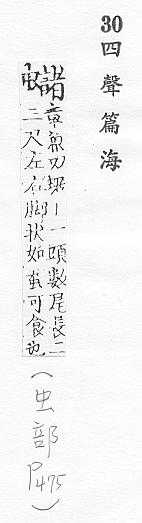 30 四聲篇海
蠩
章魚切丨一頭數尾長二
三尺左右脚狀如蚕可食也
(虫部 P475)